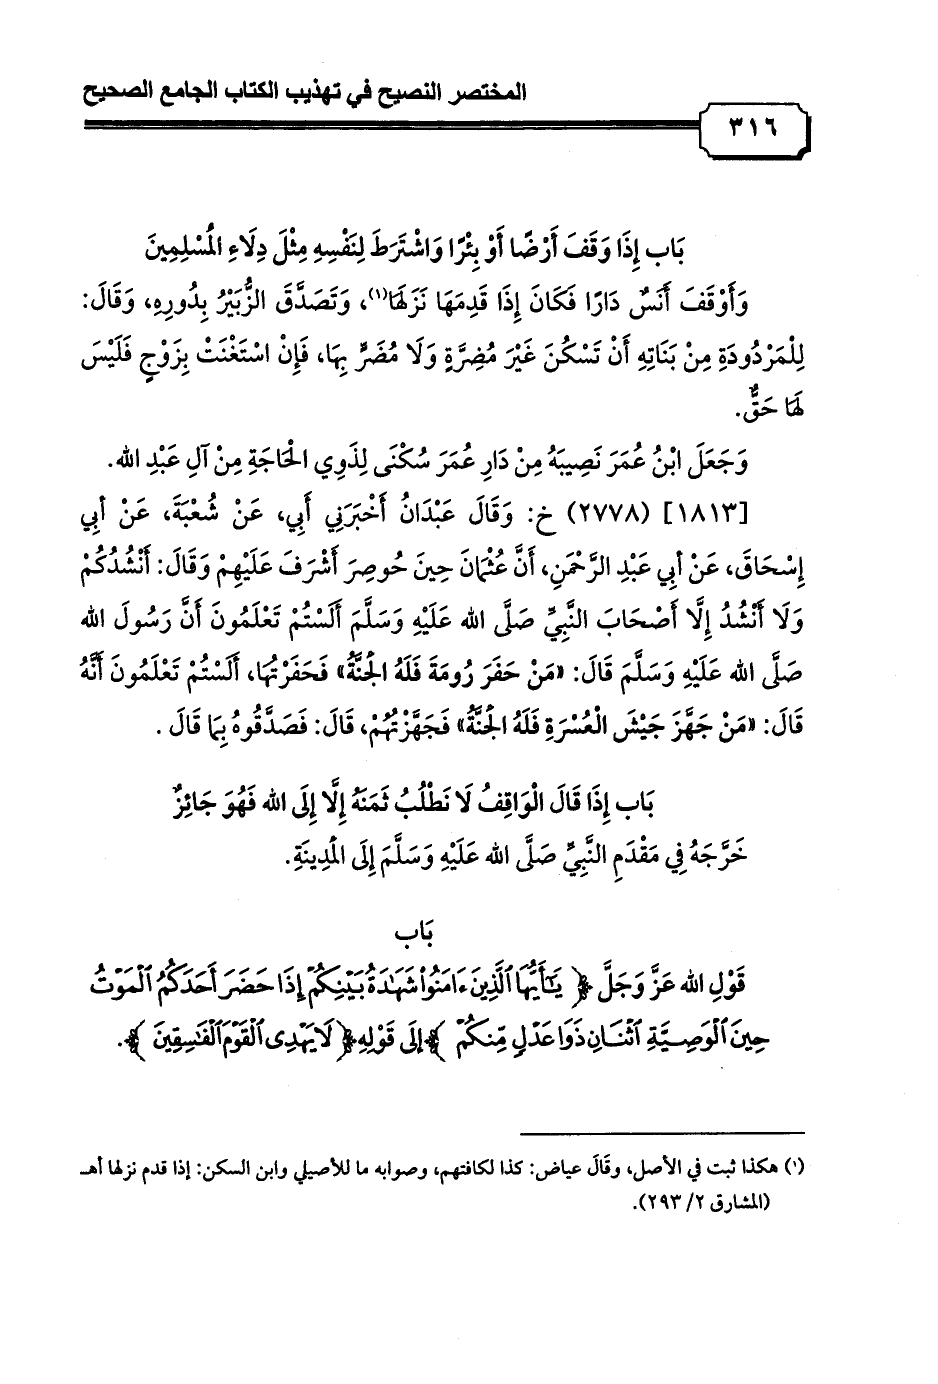 المختصر النصيح في تهذيب الكتاب الجامع الصحيح
٣١٦
بَاب إِذَا وَقَفَ أَرْضًا أَوْ بِئْرًا وَاشْتَرَطَ لِنَفْسِهِ مِثْلَ دِلَاءِ الْمُسْلِمِينَ
وَأَوْقَفَ أَنَسٌ دَارًا فَكَانَ إِذَا قَدِمَهَا نَزَلَهَا(١)، وَتَصَدَّقَ الزُّبَيْرُ بِدُورِهِ، وَقَالَ:
لِلْمَرْدُودَةِ مِنْ بَنَاتِهِ أَنْ تَسْكُنَ غَيْرَ مُضِرَّةٍ وَلَا مُضَرٍّ بِهَا، فَإِنْ اسْتَغْنَتْ بِزَوْجٍ فَلَيْسَ
لَهَا حَقٌّ.
وَجَعَلَ ابْنُ عُمَرَ نَصِيبَهُ مِنْ دَارِ عُمَرَ سُكْنَى لِذَوِي الْحَاجَةِ مِنْ آلِ عَبْدِ الله.
[١٨١٣] (٢٧٧٨) خ: وَقَالَ عَبْدَانُ أَخْبَرَنِي أَبِي، عَنْ شُعْبَةَ، عَنْ أَبِي
إِسْحَاقَ، عَنْ أَبِي عَبْدِ الرَّحْمَنِ، أَنَّ عُثْمَانَ حِينَ حُوصِرَ أَشْرَفَ عَلَيْهِمْ وَقَالَ: أَنْشُدُكُمْ
وَلَا أَنْشُدُ إِلَّا أَصْحَابَ النَّبِيِّ صَلَّى الله عَلَيْهِ وَسَلَّمَ أَلَسْتُمْ تَعْلَمُونَ أَنَّ رَسُولَ الله
صَلَّى الله عَلَيْهِ وَسَلَّمَ قَالَ: «مَنْ حَفَرَ رُومَةَ فَلَهُ الْجَنَّةُ» فَحَفَرْتُهَا، أَلَسْتُمْ تَعْلَمُونَ أَنَّهُ
قَالَ: «مَنْ جَهَّزَ جَيْشَ الْعُسْرَةِ فَلَهُ الْجَنَّةُ» فَجَهَّزْتُهُمْ، قَالَ: فَصَدَّقُوهُ بِمَا قَالَ .
بَاب إِذَا قَالَ الْوَاقِفُ لَا نَطْلُبُ ثَمَنَهُ إِلَّا إِلَى الله فَهُوَ جَائِزٌ
خَرَّجَهُ فِي مَقْدَمِ النَّبِيِّ صَلَّى الله عَلَيْهِ وَسَلَّمَ إِلَى الْمَدِينَةِ.
بَاب
قَوْلِ الله عَزَّ وَجَلَّ ﴿ يَٰٓأَيُّهَا ٱلَّذِينَ ءَامَنُوا۟ شَهَٰدَةُ بَيْنِكُمْ إِذَا حَضَرَ أَحَدَكُمُ ٱلْمَوْتُ
حِينَ ٱلْوَصِيَّةِ ٱثْنَانِ ذَوَا عَدْلٍ مِّنكُمْ ﴾ إِلَى قَوْلِهِ ﴿ لَا يَهْدِى ٱلْقَوْمَ ٱلْفَٰسِقِينَ ﴾.
(١) هكذا ثبت في الأصل، وقَالَ عياض: كذا لكافتهم، وصوابه ما للأصيلي وابن السكن: إذا قدم نزلها أهـ
(المشارق ٢/ ٢٩٣).